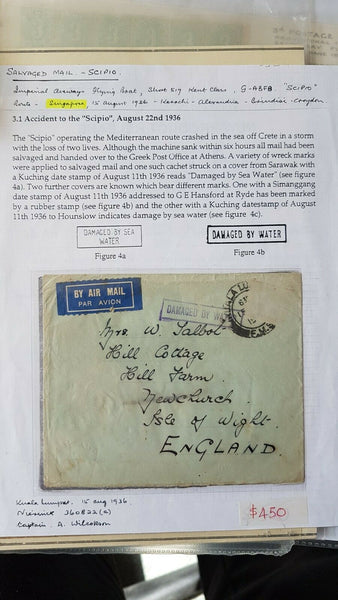 SALVAGED MAIL - SCIPIO.
Imperial Airways Flying Boat, Short S17 Kent Class, G-ABFB, "SCIPIO"
Route - Singapore, 15 August 1936 - Karachi - Alexandria - Brindisi - Croydon
3.1 Accident to the "Scipio", August 22nd 1936
The "Scipio" operating the Mediterranean route crashed in the sea off Crete in a storm
with the loss of two lives. Although the mail tank within six hours all mail had been
salvaged and handed over to the Greek Post Office at Athens. A variety of wreck marks
were applied to salvaged mail and one such cachet struck on a cover from Sarawak with
a Kuching date stamp of August 11th 1936 reads "Damaged by Sea Water" (see figure
4a). Two further covers are known which bear different marks. One with a Simanggang
date stamp of August 11th 1936 addressed to G E Hansford at Ryde has been marked
by a rubber stamp (see figure 4b) and the other with a Kuching datestamp of August
11th 1936 to Hounslow indicates damage by sea water (see figure 4c).
DAMAGED BY SEA
WATER
Figure 4a
DAMAGED BY WATER
Figure 4b
BY AIR MAIL
PAR AVION
DAMAGED BY WA
KUALA LU
F.M.S
Mrs. W. Talbot
Hill Cottage
Hill Farm.
Newchurch.
Isle of Wight.
ENGLAND.
Kuala Lumpur. 15 Aug 1936
Nierinck 360822(a)
Captain A. Wilcockson
$450